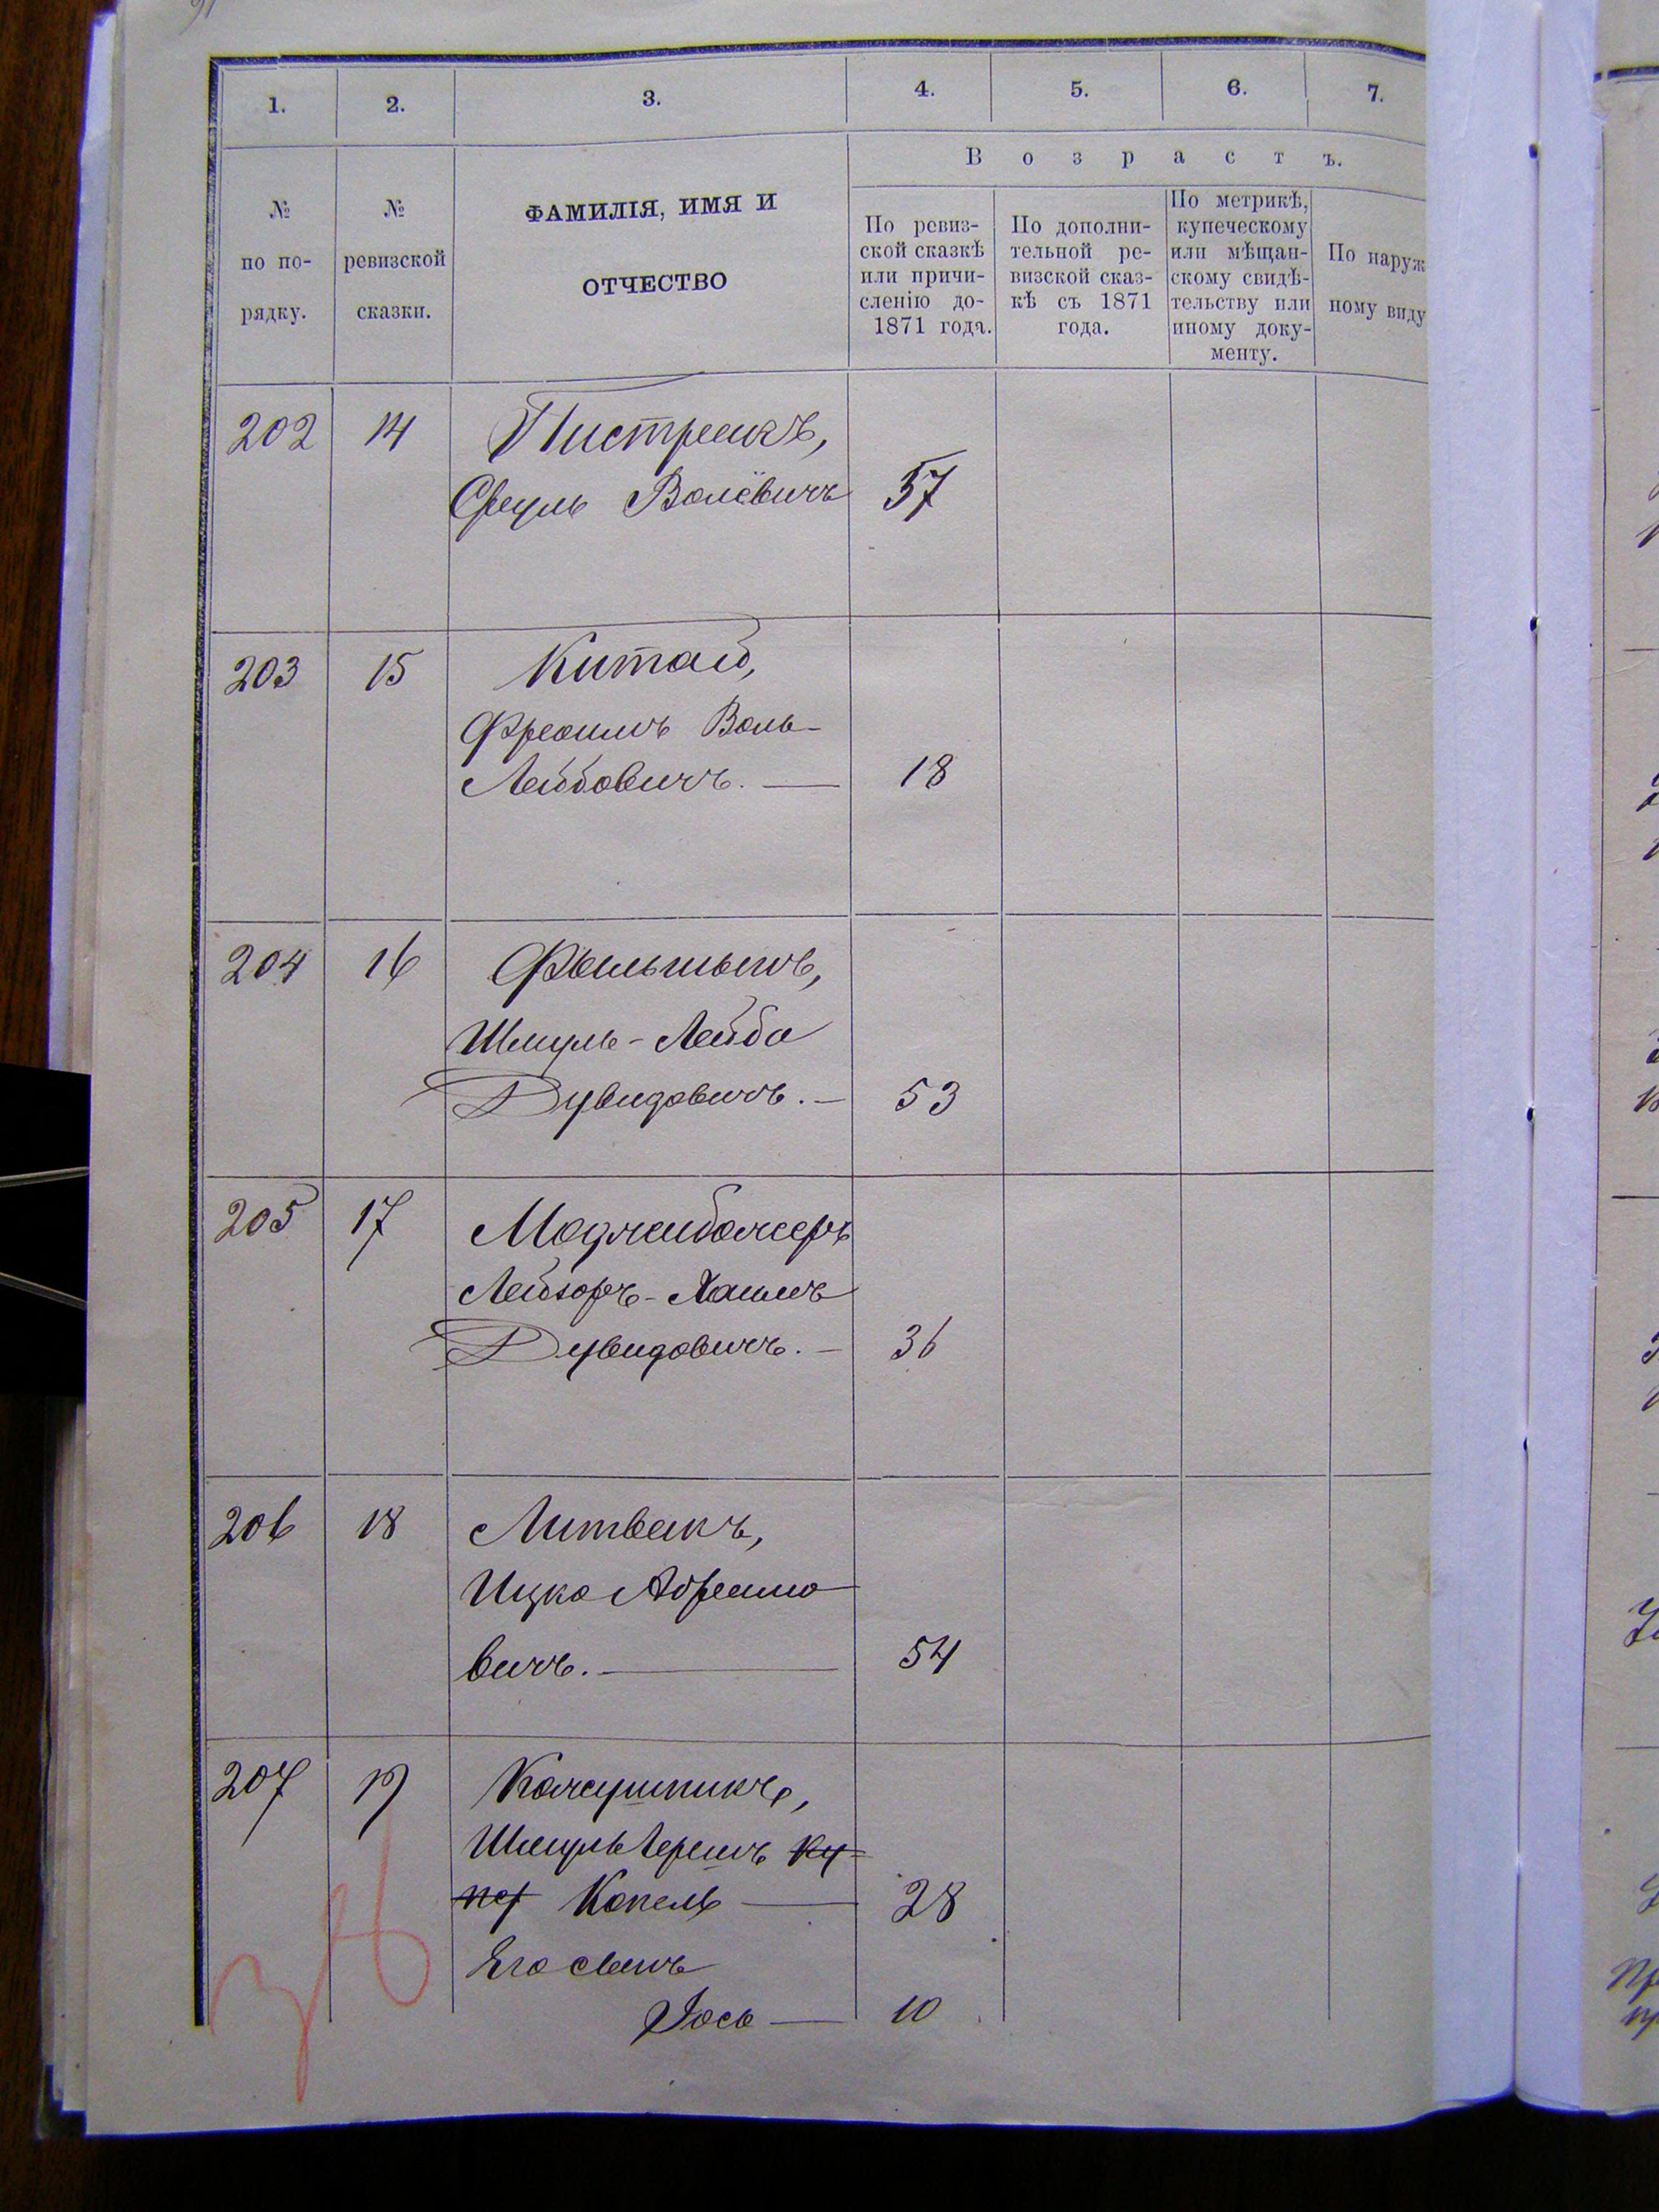 1. 2. 3. 4. 5. 6. 7.
Возрастъ.
№ по по- рядку.
№ ревизской сказки.
ФАМИЛІЯ, ИМЯ И
ОТЧЕСТВО
По ревиз-
ской сказкѣ
или причи-
сленію до-
1871 года.
По дополни-
тельной ре-
визской сказ-
кѣ съ 1871
года.
По метрикѣ,
купеческому
или мѣщан-
скому свидѣ-
тельству или
иному доку-
менту.
По наруж
ному виду
202 14 Пистрекъ,
Сруль Волёвичъ 37
203 15 Китай,
Фроимъ Воль-
Лейбовичъ. — 18
204 16
Шмуль-Лейба
Дувидовичъ. — 53
205 17
Лейзоръ-Хаимъ
Дувидовичъ. — 36
206 18 Литвакъ,
Ицко Абрамо
вичъ. — 54
207 19 Кожушникъ,
Шмуль Гершъ Ку-
пер Копель — 28
Его сынъ
Іось — 10